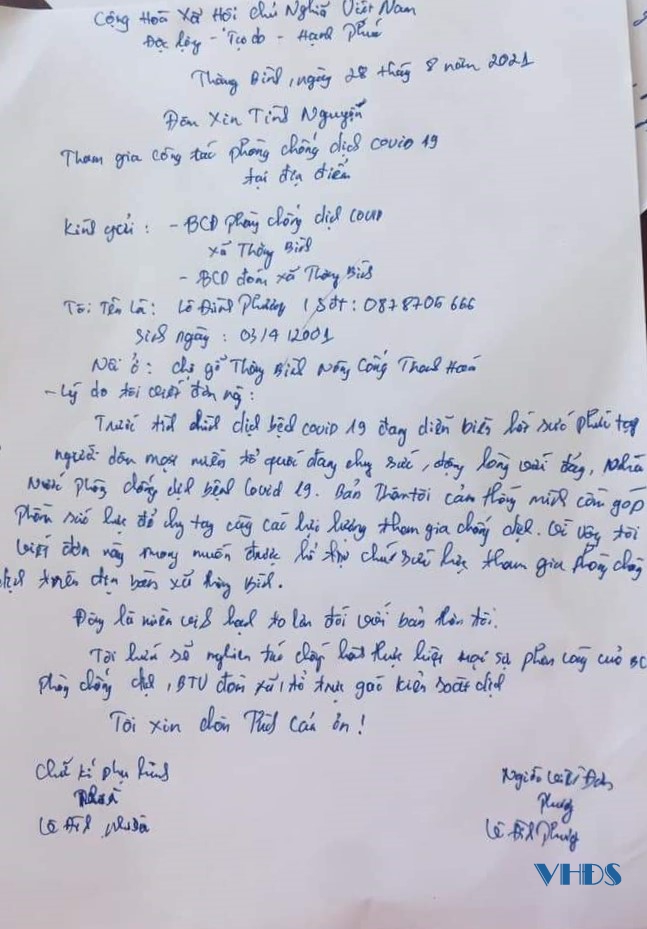 Cộng Hoà Xã Hội Chủ Nghĩa Việt Nam
Độc lập - Tự do - Hạnh Phúc
Thăng Bình, ngày 28 tháng 8 năm 2021
Đơn Xin Tình Nguyện
Tham gia công tác phòng chống dịch covid 19
tại địa điểm
Kính gửi : - BCĐ phòng chống dịch COVID
xã Thăng Bình
- BCĐ đoàn xã Thăng Bình
Tôi Tên là : Lê Đình Phương / Sđt : 0878705666
Sinh ngày : 03/4/2001
Nơi ở : Thăng Bình Nông Cống Thanh Hoá
- Lý do tôi viết đơn này :
Trước tình hình dịch bệnh covid 19 đang diễn biến hết sức phức tạp
người dân mọi miền tổ quốc đang chung sức, đồng lòng với đảng, Nhà
Nước phòng chống dịch bệnh Covid 19. Bản Thân tôi cảm thấy mình cần góp
phần sức lực để chung tay cùng các lực lượng tham gia chống dịch. Vì vậy tôi
viết đơn này mong muốn được chút sức lực tham gia phòng chống
dịch trên địa bàn xã Thăng Bình.
Đây là niềm vinh hạnh to lớn đối với bản thân tôi.
Tôi hứa sẽ nghiêm túc chấp hành thực hiện mọi sự phân công của BC
phòng chống dịch, BTV đoàn xã, tổ trực gác kiểm soát dịch
Tôi xin chân Thành Cảm ơn !
Chữ kí phụ huynh
Lê Đình
Người Viết Đơn
Phương
Lê Đình Phương
VHDS